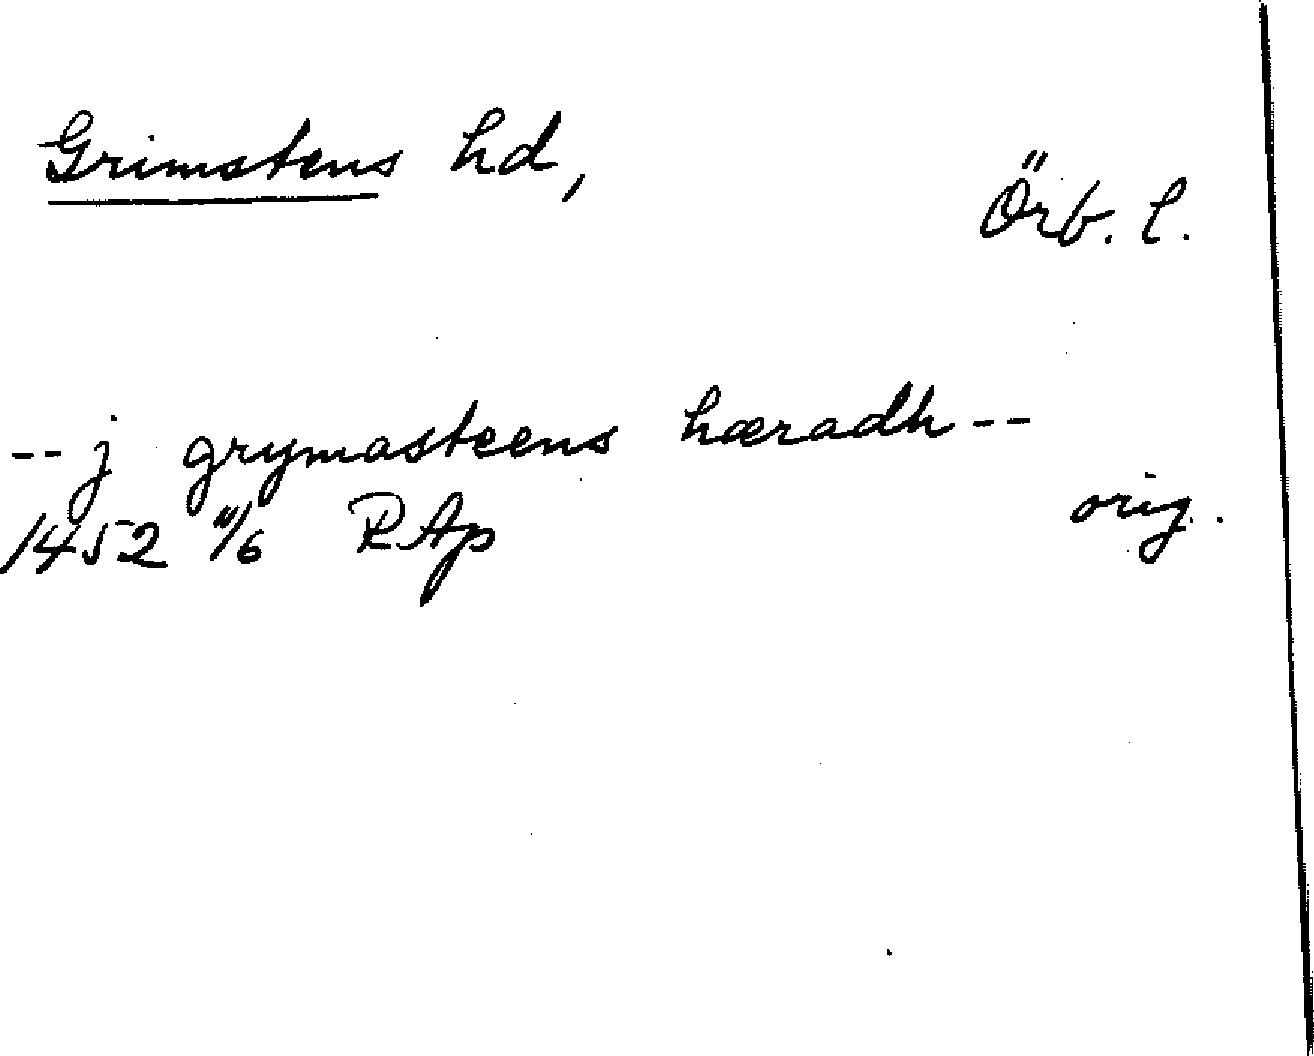 Grimstens hd,
Örb. l.
-- j grymasteens hæradh --
1452 11/6 RAp orig.